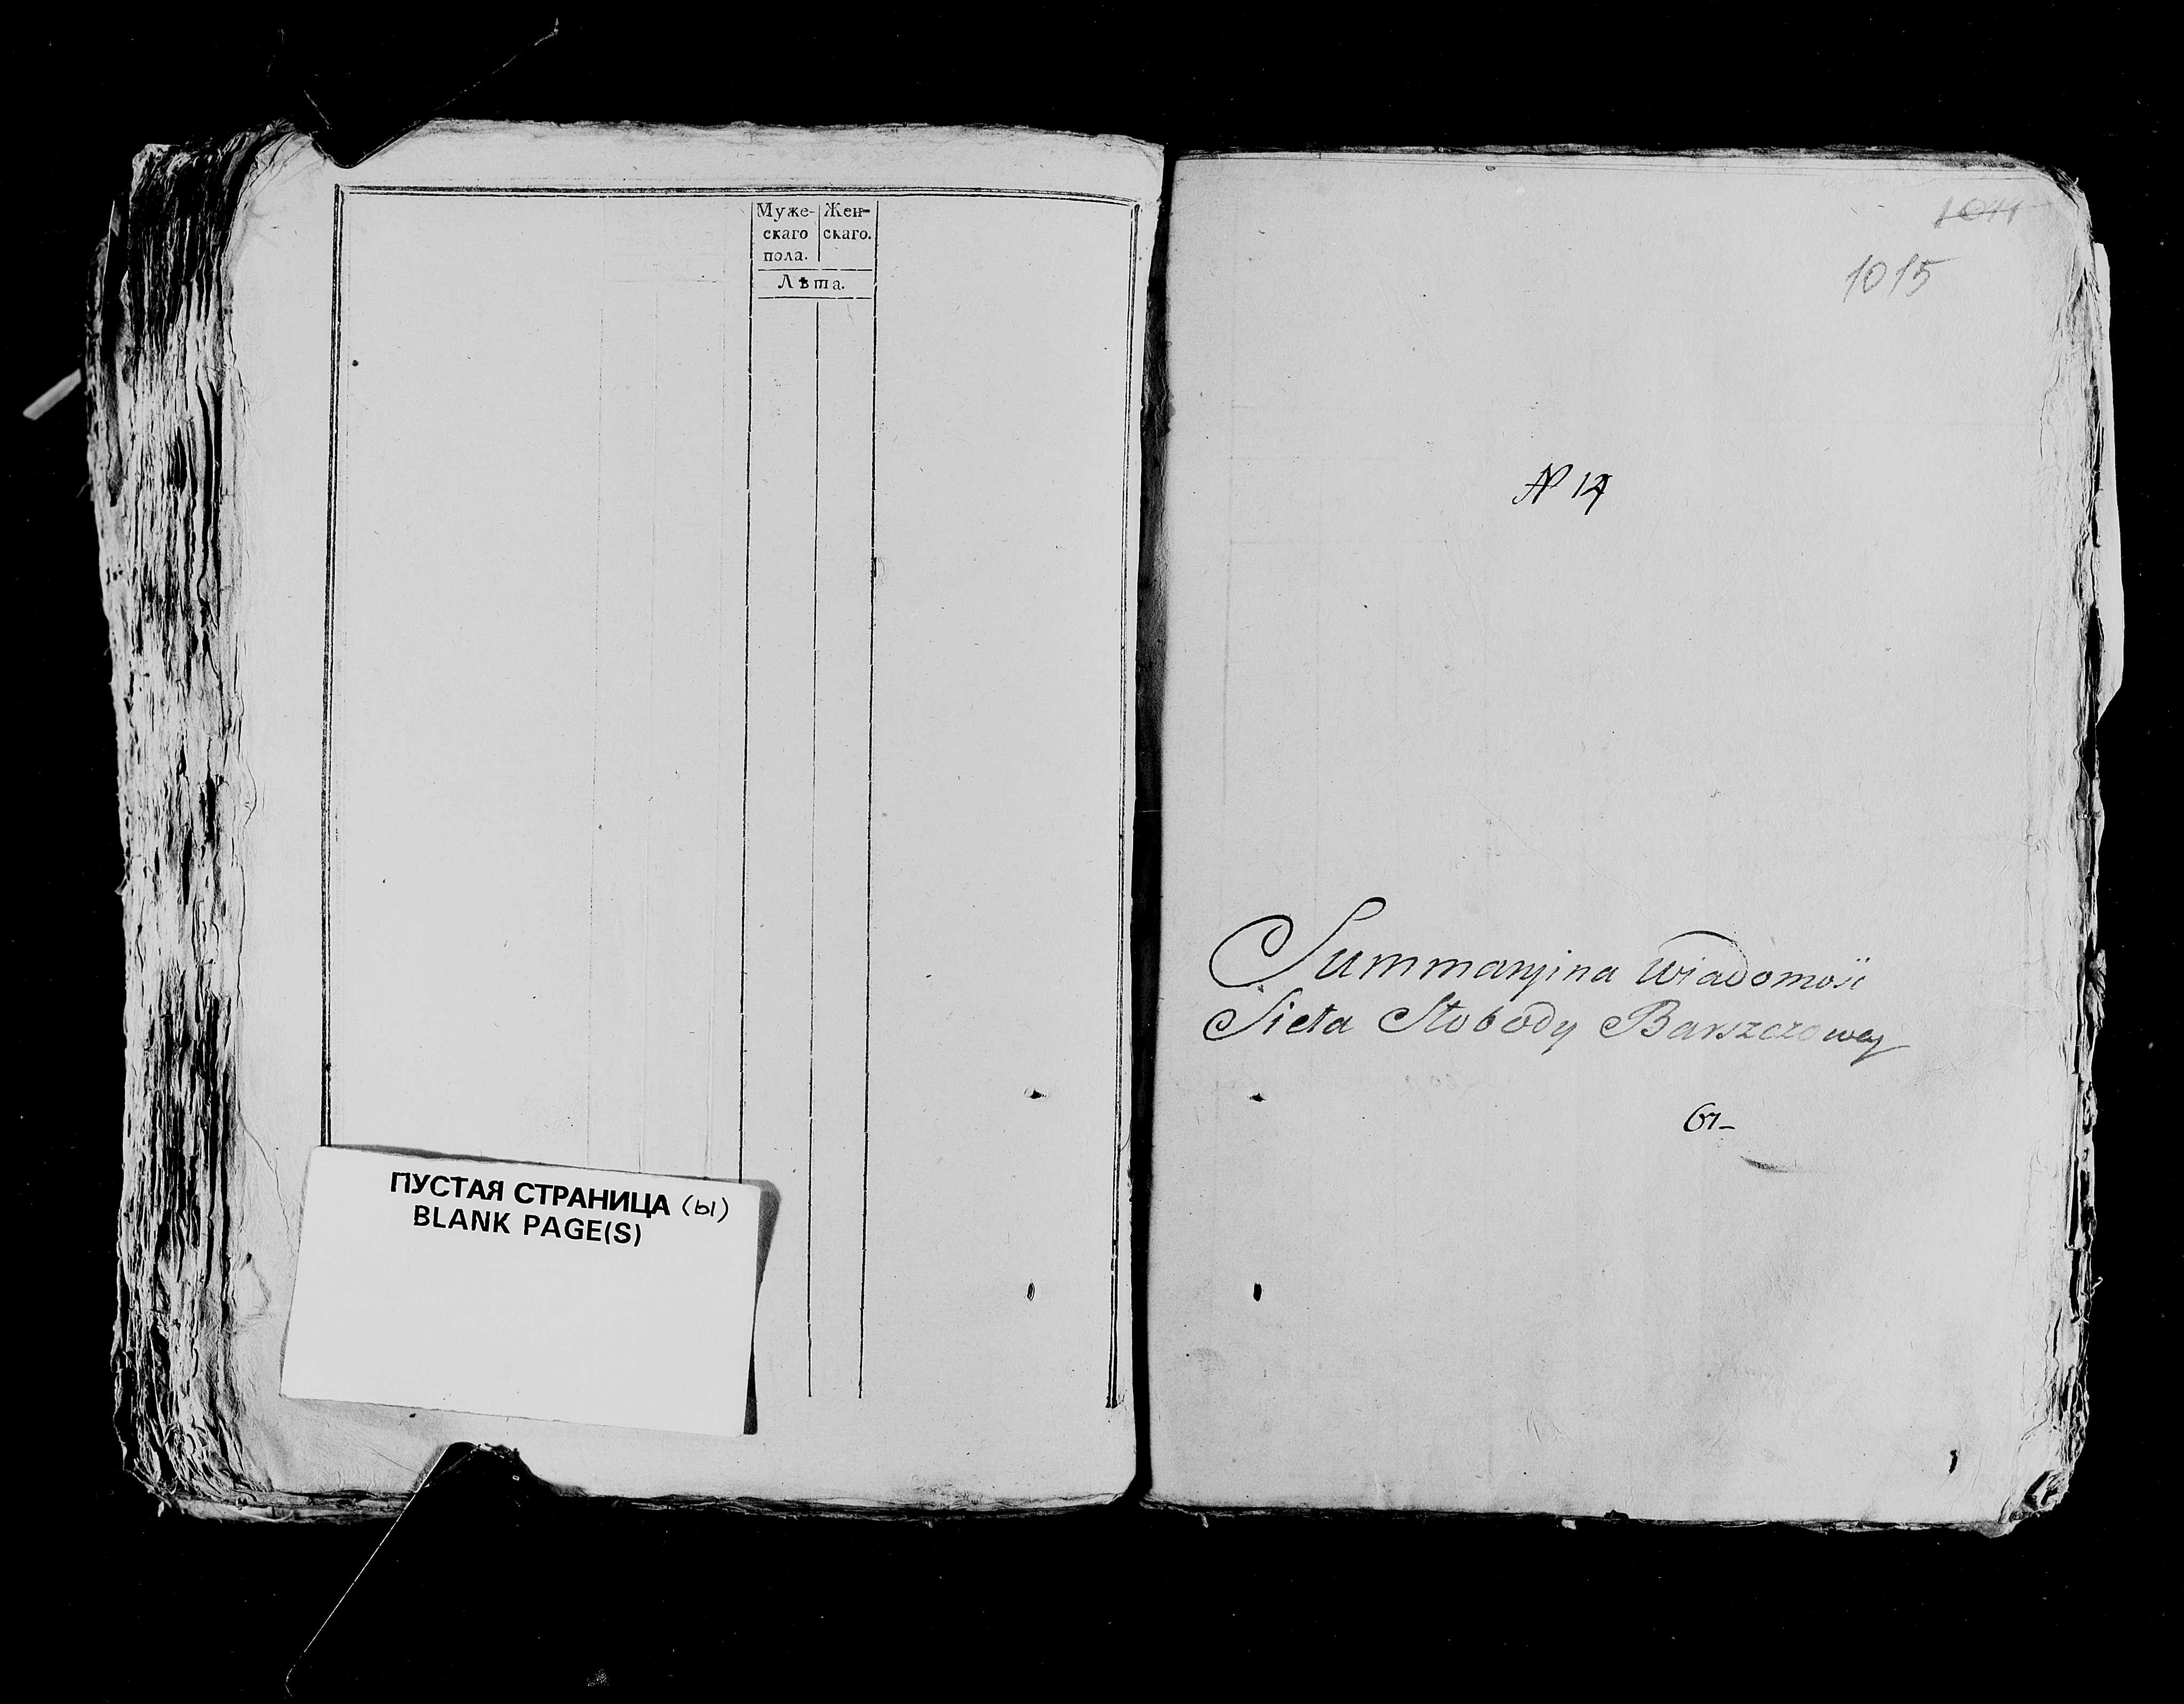 Муже- Жен-
скаго скаго.
пола.
Лѣта.
ПУСТАЯ СТРАНИЦА (ы)
BLANK PAGE(S)
1011
1015
N 14
Summaryina wiadomość
Sieła Słobody Barszczowey
61-